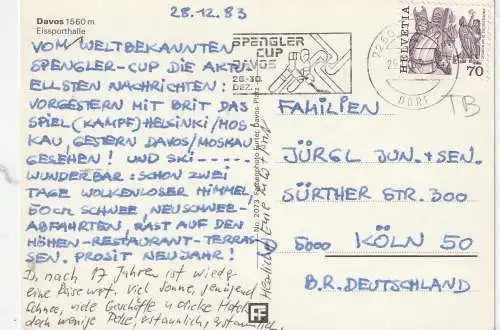 Davos 1560 m
Eissporthalle
28.12.83
VOM WELTBEKANNTEN
SPENGLER-CUP DIE AKTU-
ELLSTEN NACHRICHTEN:
VORGESTERN MIT BRIT DAS
SPIEL (KAMPF) HELSINKI/MOS-
KAU, GESTERN DAVOS/MOSKAU
GESEHEN! UND SKI-----
WUNDERBAR: SCHON ZWEI
TAGE WOLKENLOSER HIMMEL,
50cm SCHNEE, NEUSCHNEE-
ABFAHRTEN, RAST AUF DEN
HÖHEN-RESTAURANT-TERRAS-
SEN. PROSIT NEUJAHR!
Ja, nach 17 Jahren ist wieder
eine Reise wert. Viel Sonne, genügend
Schnee, viele Geschäfte u dicke Hotels
doch wenige
No. 2073 Farbenphoto Furter, Davos-Platz
SPENGLER
CUP
DAVOS
26-30.
DEZ.
DORF
HELVETIA
70
TB
FAMILIEN
JÜRGL JUN. + SEN.
SÜRTHER STR. 300
5000 KÖLN 50
B.R. DEUTSCHLAND